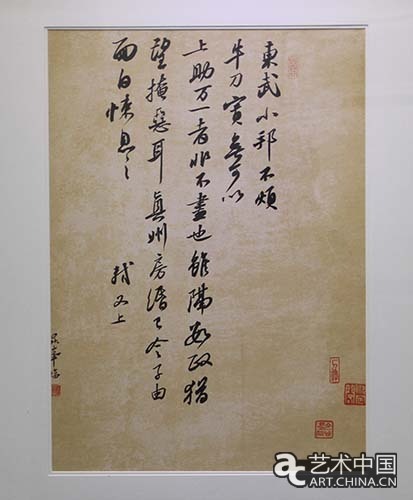 東武小邦不煩
牛刀實無可以
上助万一者非不盡也雖隔數政猶
望掩惡耳真州房緡已令子由
面白悚息〻
軾又上
艺术中国
ART.CHINA.CN